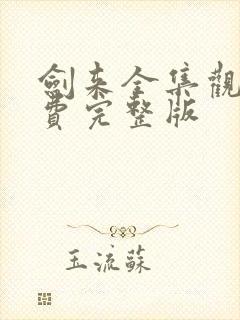 劍来全集觀
費完整版
玉流蘇